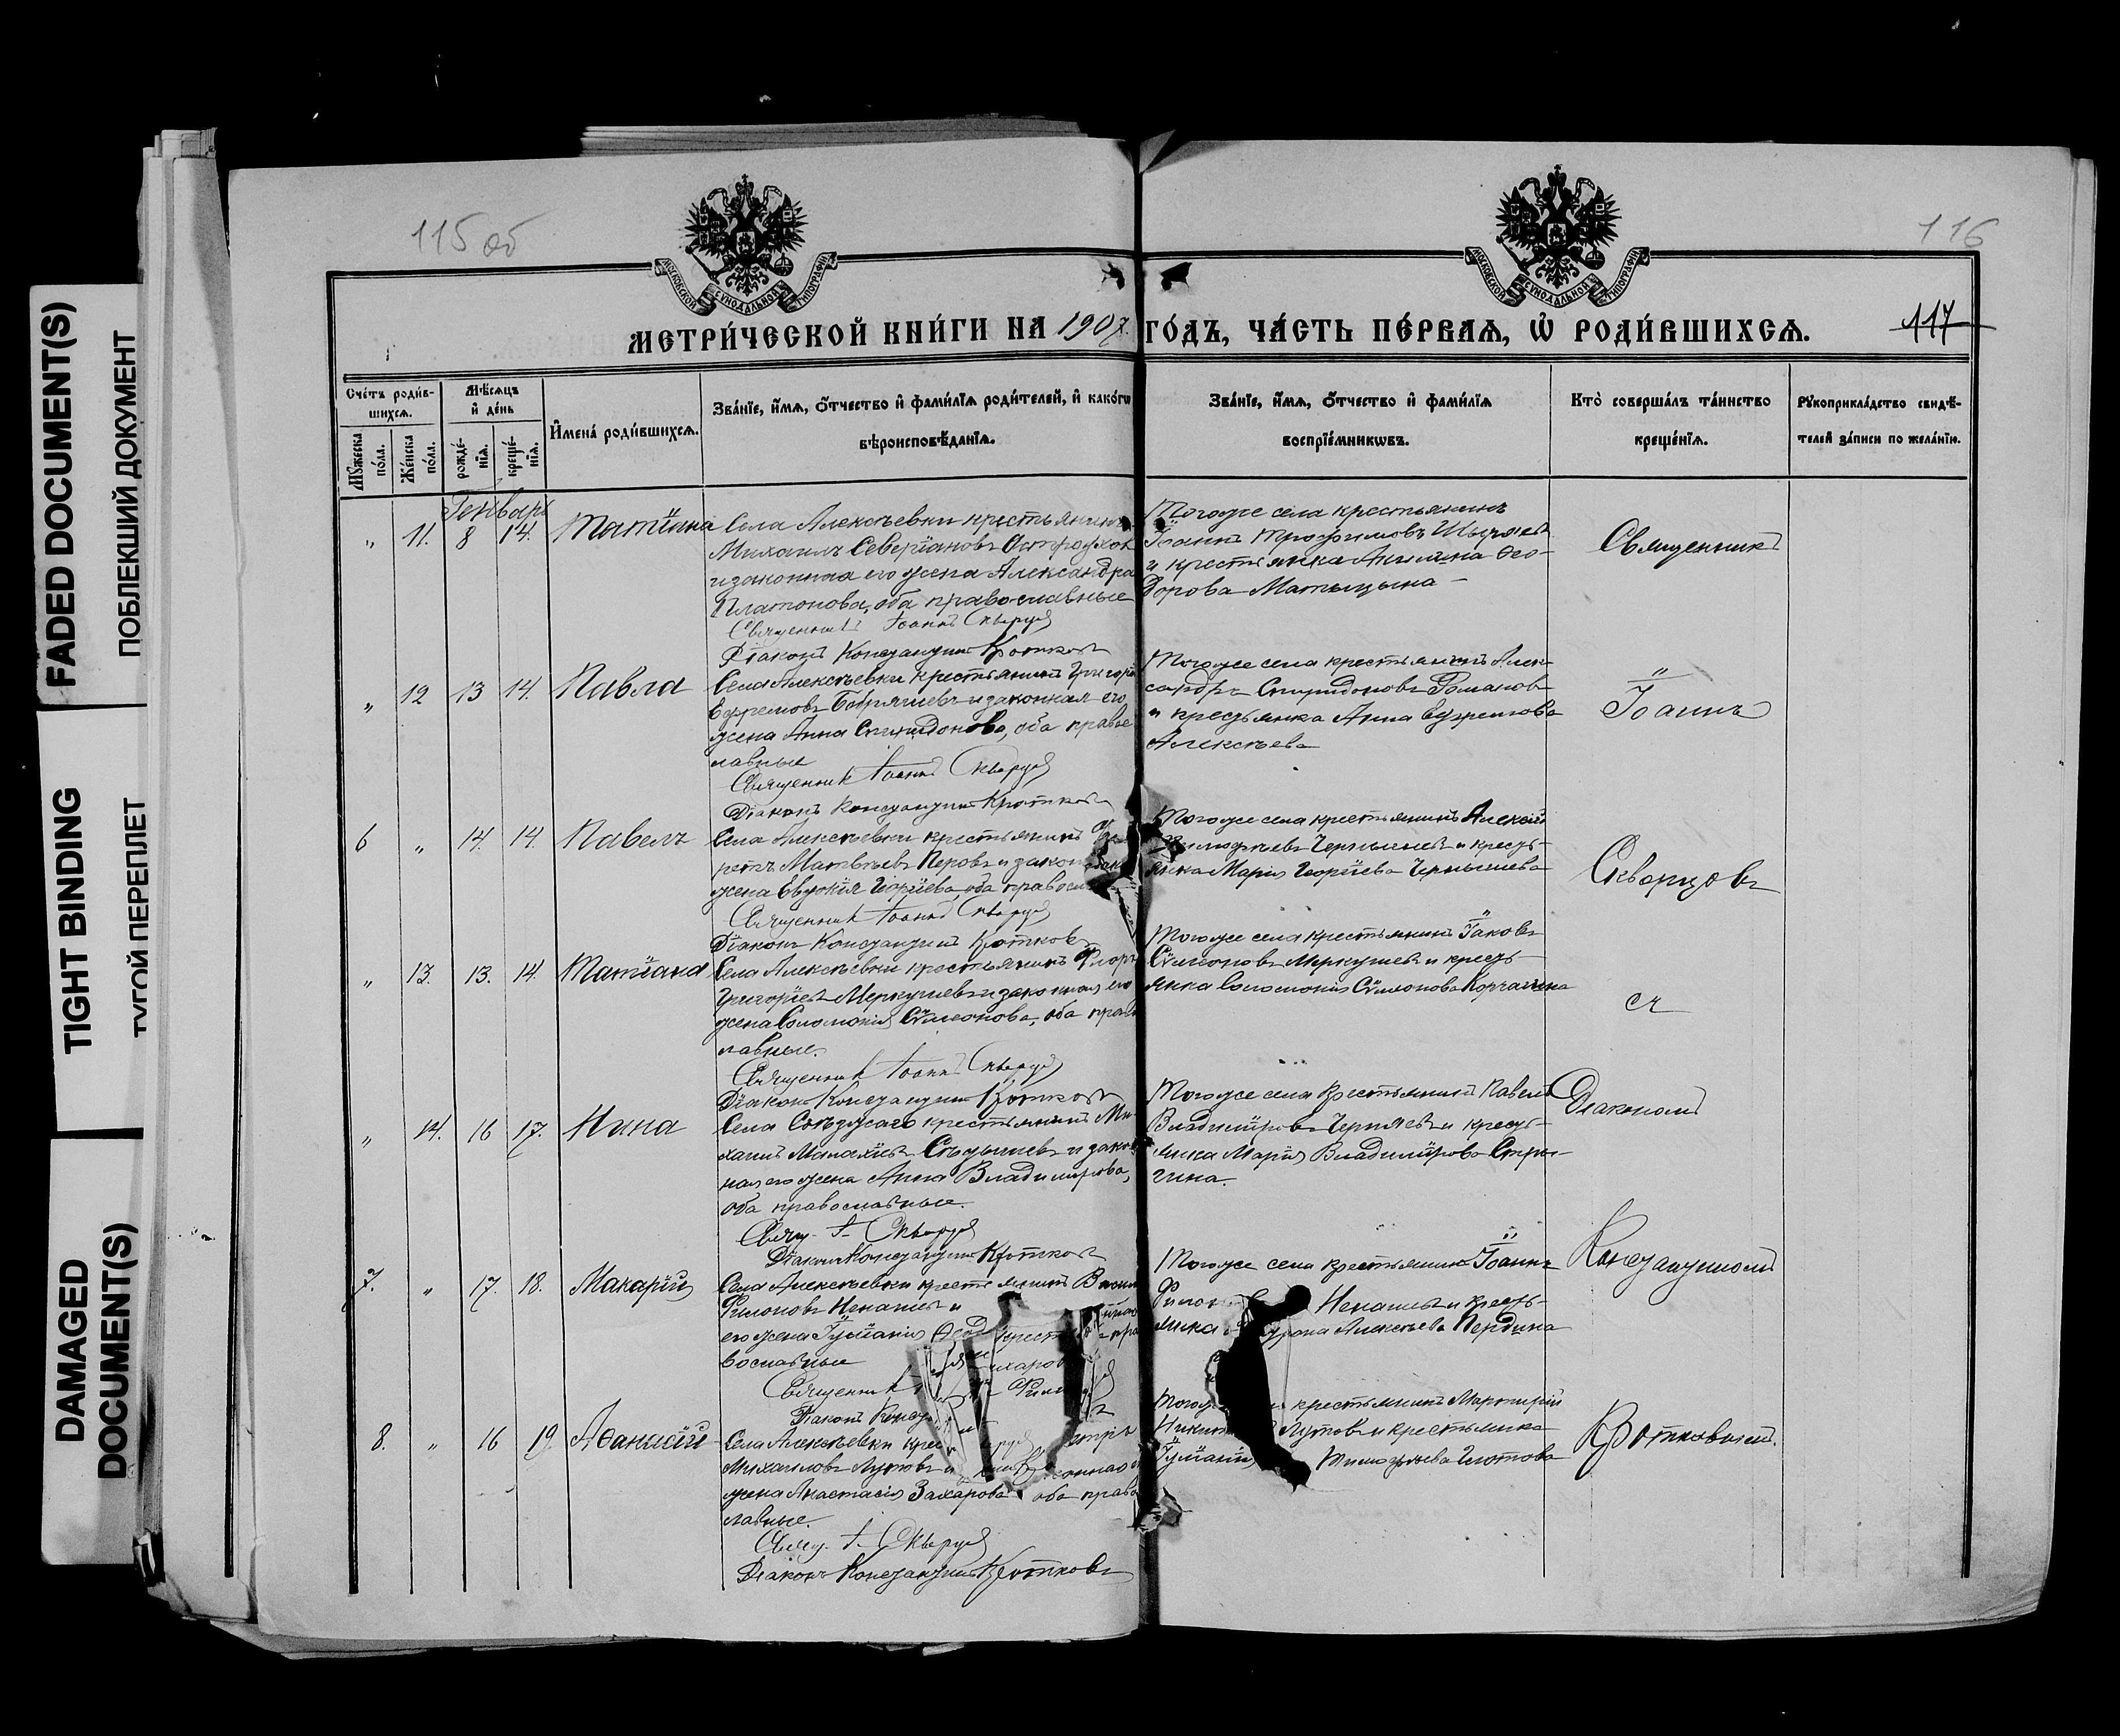 FADED DOCUMENT(S)
ПОБЛЕКШИЙ ДОКУМЕНТ
TIGHT BINDING
ТУГОЙ ПЕРЕПЛЕТ
DAMAGED
DOCUMENT(S)
115 об
116
117
МОСКОВСКОЙ СѴНОДАЛЬНОЙ ТИПОГРАФІИ
МОСКОВСКОЙ СѴНОДАЛЬНОЙ ТИПОГРАФІИ
МЕТРИ́ЧЕСКОЙ КНИ́ГИ НА 1907. ГО́ДЪ, ЧА́СТЬ ПЕ́РВАѦ, Ѡ҆ РОДИ́ВШИХСѦ.
Сче́тъ роди́в-
шихсѧ.
Мꙋ́жеска
по́ла.
Же́нска
по́ла.
Мѣ́сѧцъ
и҆ де́нь
рожде́-
нїѧ.
креще́-
нїѧ.
И҆мена̀ роди́вшихсѧ.
Зва́нїе, и҆́мѧ, ѻ҆́тчество и҆ фами́лїѧ роди́телей, и҆ како́гѡ
вѣроисповѣ́данїѧ.
Зва́нїе, и҆́мѧ, ѻ҆́тчество и҆ фами́лїѧ
воспрїе́мникѡвъ.
Кто̀ соверша́лъ та́инство
креще́нїѧ.
Рꙋкоприкла́дство свидѣ́-
телей за́писи по жела́нїю.
Генварь
" 11. 8 14. Татіана
Села Алексѣевки крестьянинъ
Михаилъ Северіановъ
и законная его жена Александра
Платонова, оба православные
Священникъ Іоаннъ Скварцов
Діаконъ Константинъ Кротков
Тогоже села крестьянинъ
Іоаннъ Трофимовъ
и крестьянка Акилина Ѳео-
дорова Матыцына
Священникъ
" 12 13 14. Павла
Села Алексѣевки крестьянинъ Григорій
Ефремовъ и законная его
жена Анна Спиридонова, оба правос
лавные
Священник Іоаннъ Скварцов
Діаконъ Константинъ Кротковъ
Тогоже села крестьянинъ Алек-
сандръ Спиридоновъ Романовъ
и крестьянка Анна Ефремова
Алексѣева
Іоаннъ
6 " 14. 14. Павелъ
Села Алексѣевки крестьянинъ
Матвѣевъ Перовъ и закон
жена Евдокія Георгіева, оба правосл
Священникъ Іоаннъ Скварцов
Діаконъ Константинъ Кротковъ
Тогоже села крестьянинъ Алексій
Чернышевъ и кресть-
янка Марія Георгіева Чернышева
Скворцовъ
" 13. 13. 14. Татіана
Села Алексѣевки крестьянинъ Флоръ
Григоріевъ Меркушевъ и законная его
жена Соломонія Сѵмеонова, оба прав
лавные.
Священникъ Іоаннъ Скварцов
Діаконъ Константинъ Кротковъ
Тогоже села крестьянинъ Іаковъ
Сѵмеоновъ Меркушевъ и кресть-
янка Соломонія Сѵмеонова Корчагина
съ
" 14. 16 17. Нина
Села крестьянинъ Ми-
хаилъ Малахіевъ и закон
ная его жена Анна Владимірова,
оба православные.
Свящ. І. Скварцов
Діаконъ Константинъ Кротковъ
Тогоже села крестьянинъ Павелъ
Владиміровъ Черняевъ и кресть-
янка Марія Владимірова Стры-
гина.
Діакономъ
7. " 17. 18. Макарій
Села Алексѣевки крестьянинъ
Филоновъ Ненашевъ и
его жена Іуліанія
вославные
Священникъ
Діаконъ
Тогоже села крестьянинъ Іоаннъ
Ненашевъ и кресть-
янка Алексѣева Пердина
Константиномъ
8. " 16 19. Аѳанасій
Села Алексѣевки
Михаиловъ Лутовъ и
жена Анастасія Захарова оба право
лавные.
Свящ. І. Скварцов
Діаконъ Константинъ Кротковъ
крестьянинъ Мартирій
Лутовъ и крестьянка
Іуліанія Тимофѣева
Кротковымъ.